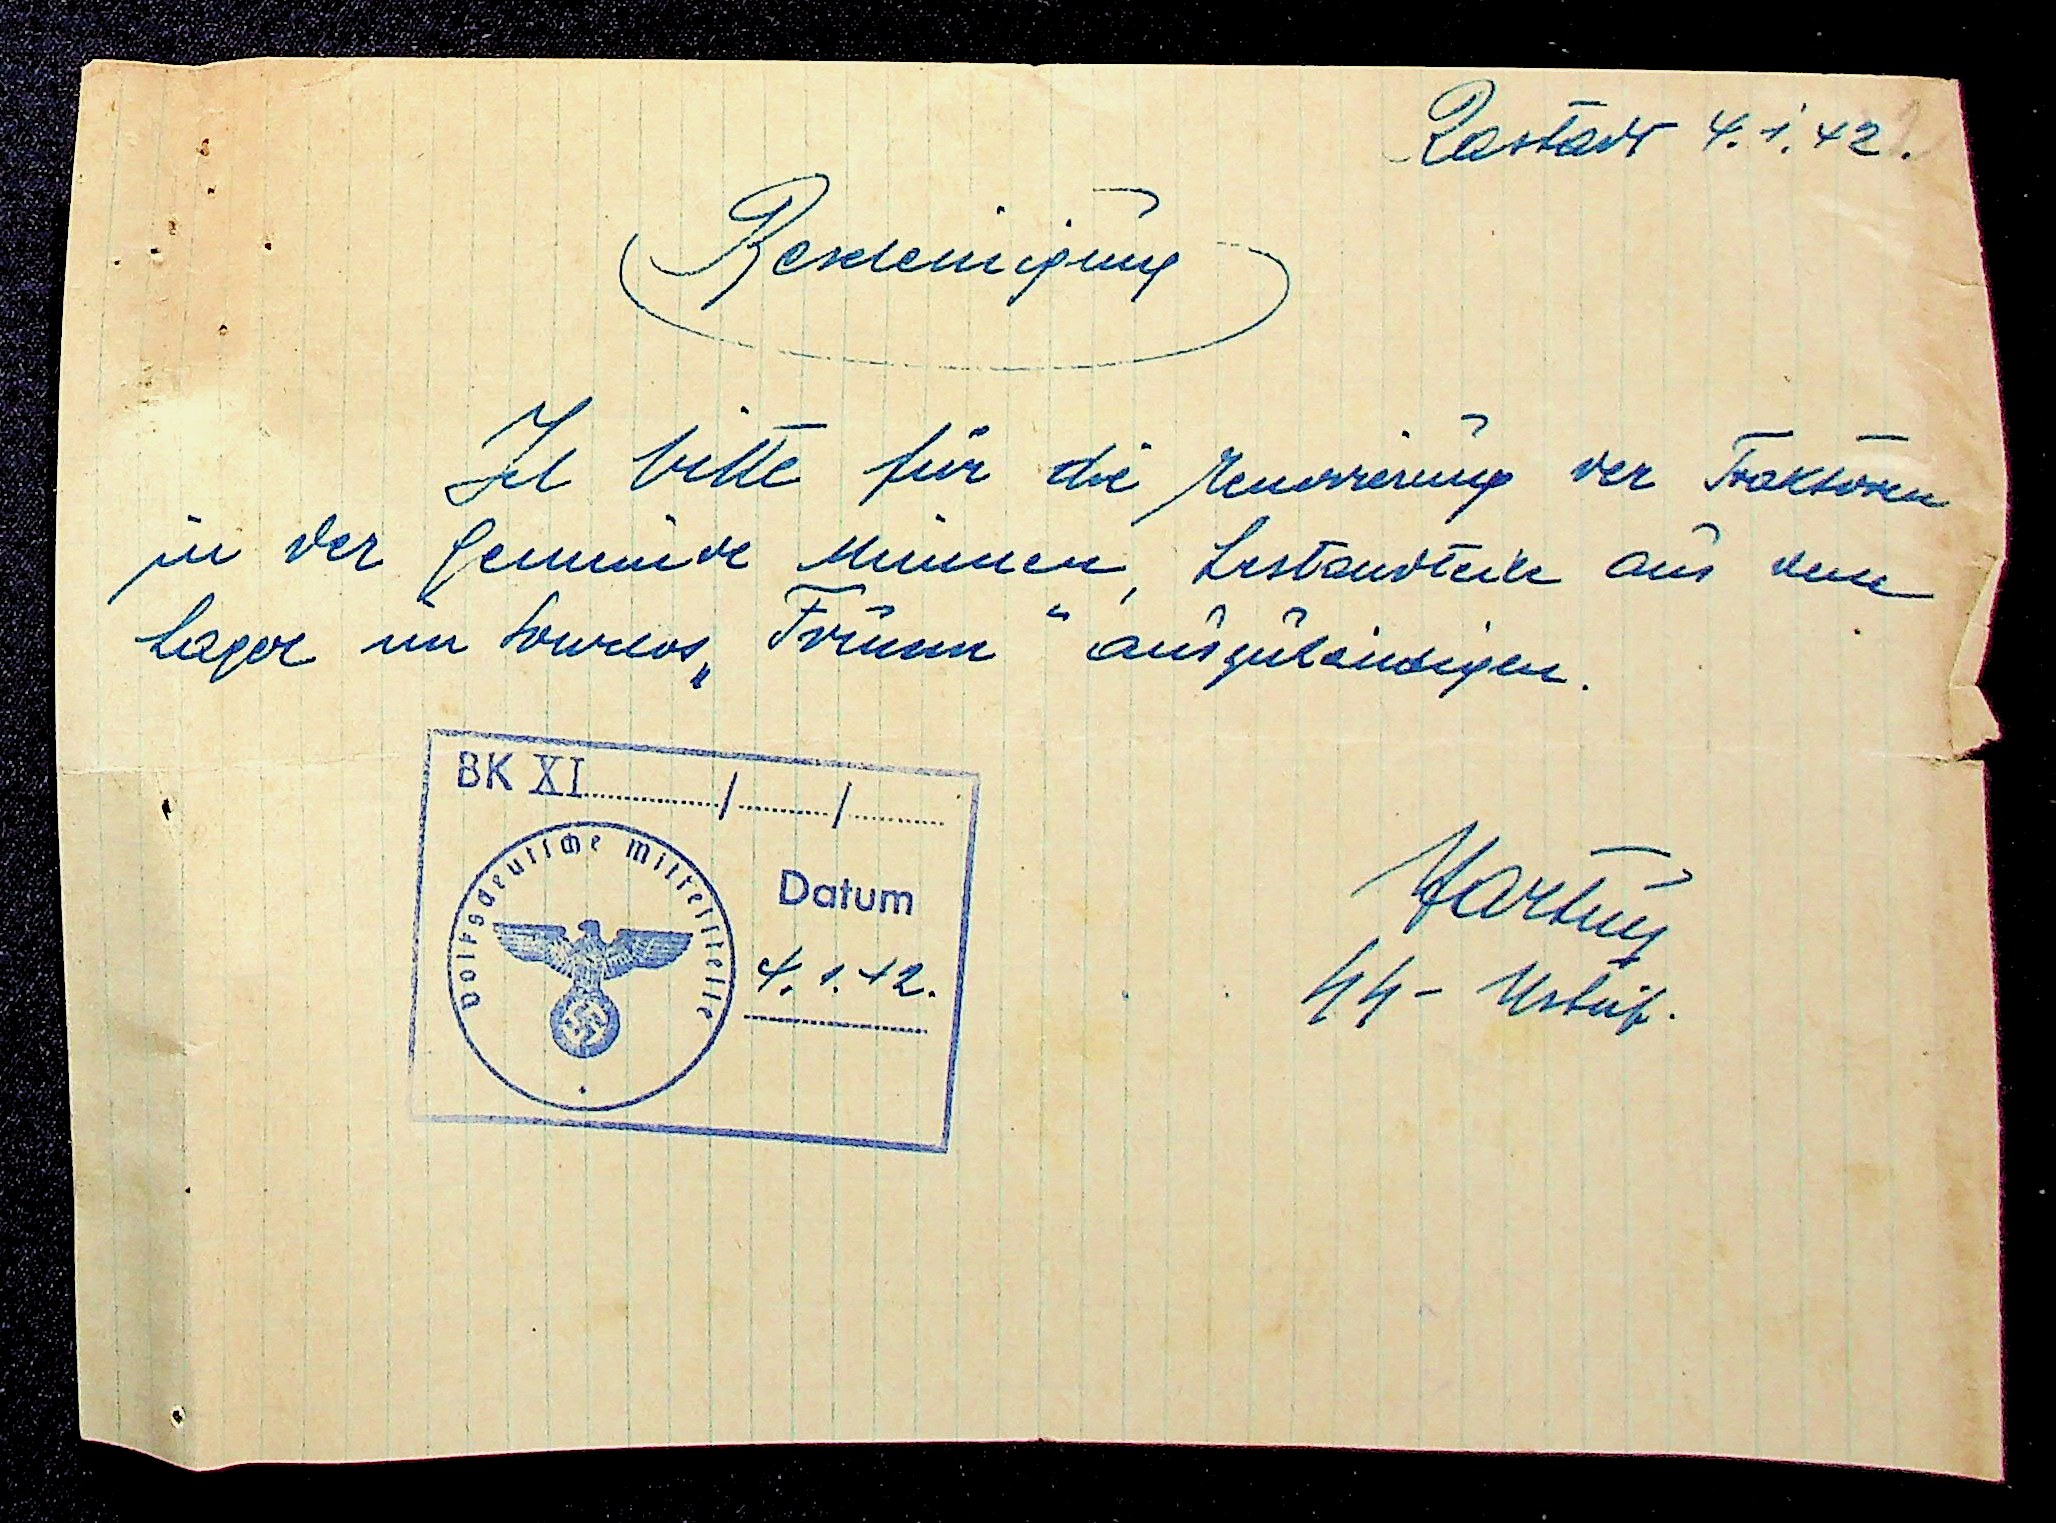 Rastadt 4.1.42.
Bescheinigung
Ich bitte für die Renovierung der Traktoren
in der Gemeinde München, Bestandteile aus dem
Lager im „ " auszuhändigen.
BK XI / /
Volksdeutsche Mittelstelle
Datum
4.1.42.
Hartung
SS-Ustuf.